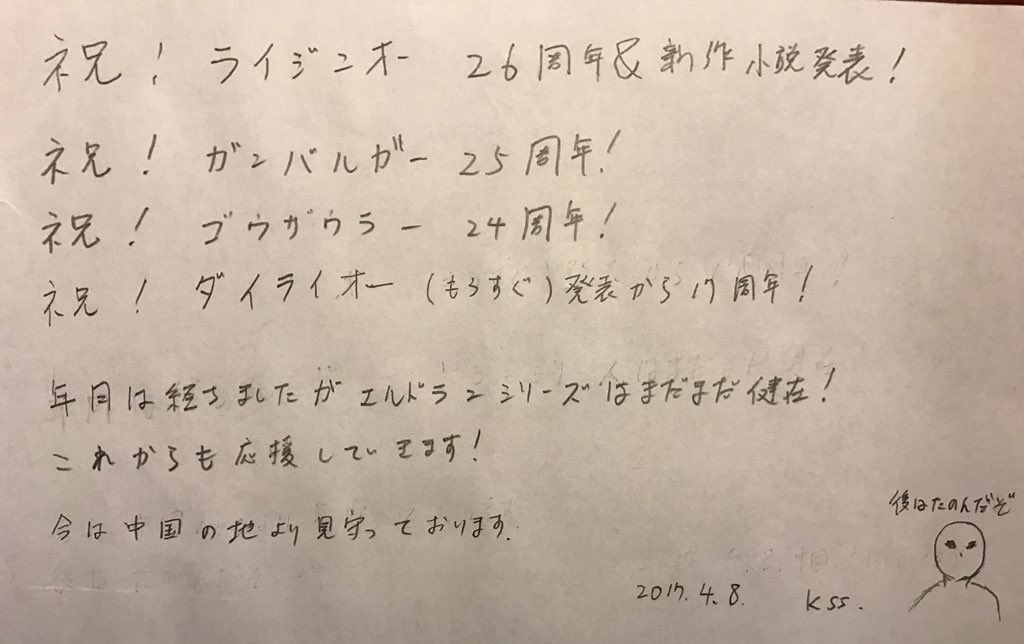 祝! ライジンオー 26周年&新作小説発表!
祝! ガンバルガー 25周年!
祝! ゴウザウラー 24周年!
祝! ダイライオー (もうすぐ)発表から17周年!
年月は経ちましたがエルドランシリーズはまだまだ健在!
これからも応援していきます!
今は中国の地より見守っております.
後はたのんだぞ
2017.4.8. KSS.